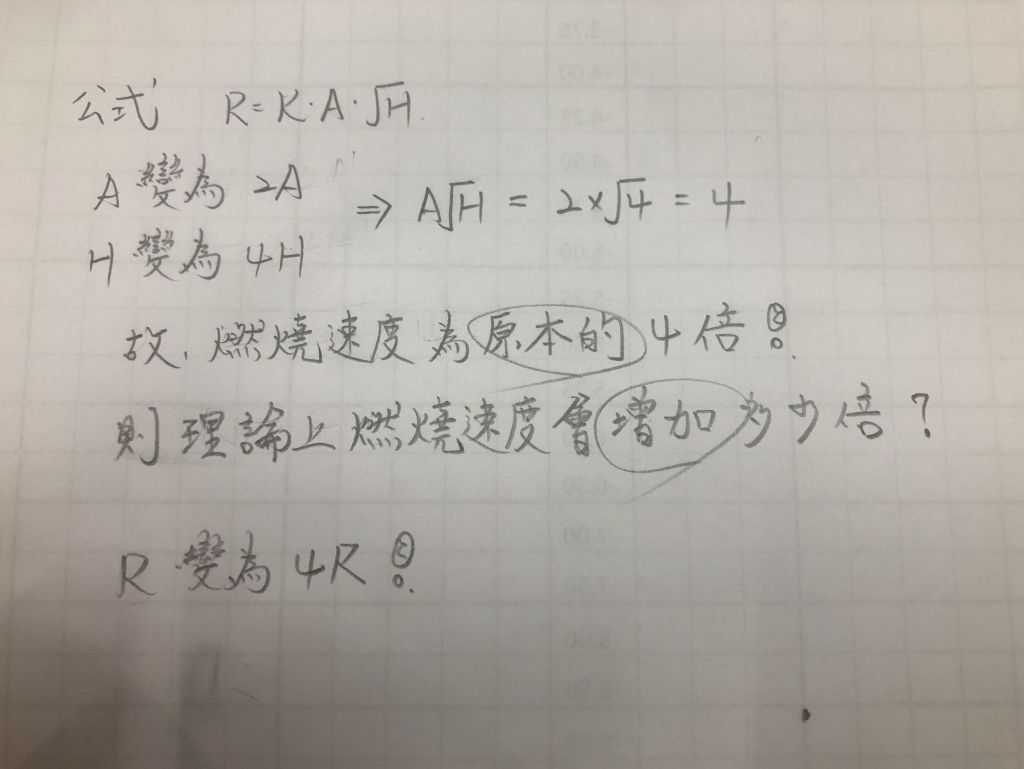 公式 R=K·A·√H.
A 變為 2A
H 變為 4H
⇒ A√H = 2×√4 = 4
故, 燃燒速度為原本的4倍!
則理論上燃燒速度會增加多少倍?
R 變為 4R!